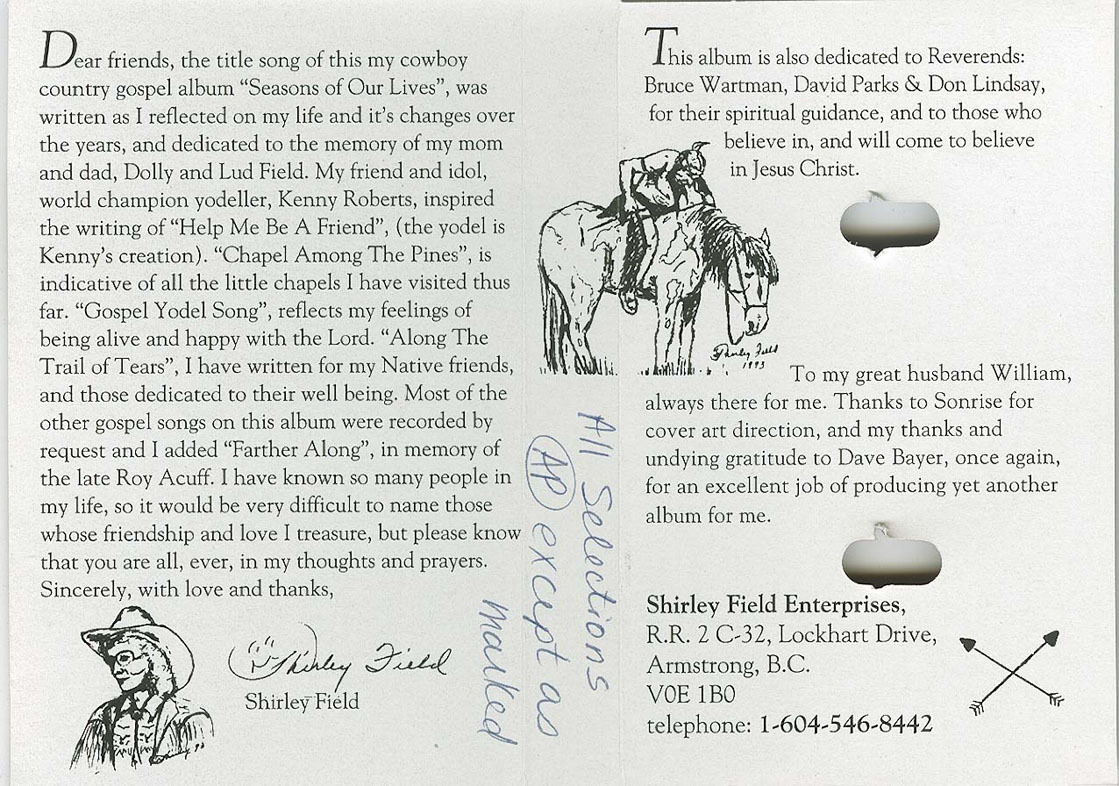 Dear friends, the title song of this my cowboy
country gospel album “Seasons of Our Lives”, was
written as I reflected on my life and it’s changes over
the years, and dedicated to the memory of my mom
and dad, Dolly and Lud Field. My friend and idol,
world champion yodeller, Kenny Roberts, inspired
the writing of “Help Me Be A Friend”, (the yodel is
Kenny’s creation). “Chapel Among The Pines”, is
indicative of all the little chapels I have visited thus
far. “Gospel Yodel Song”, reflects my feelings of
being alive and happy with the Lord. “Along The
Trail of Tears”, I have written for my Native friends,
and those dedicated to their well being. Most of the
other gospel songs on this album were recorded by
request and I added “Farther Along”, in memory of
the late Roy Acuff. I have known so many people in
my life, so it would be very difficult to name those
whose friendship and love I treasure, but please know
that you are all, ever, in my thoughts and prayers.
Sincerely, with love and thanks,
Shirley Field
Shirley Field
All Selections
AP except as
marked
This album is also dedicated to Reverends:
Bruce Wartman, David Parks & Don Lindsay,
for their spiritual guidance, and to those who
believe in, and will come to believe
in Jesus Christ.
Shirley Field
1993
To my great husband William,
always there for me. Thanks to Sonrise for
cover art direction, and my thanks and
undying gratitude to Dave Bayer, once again,
for an excellent job of producing yet another
album for me.
Shirley Field Enterprises,
R.R. 2 C-32, Lockhart Drive,
Armstrong, B.C.
V0E 1B0
telephone: 1-604-546-8442